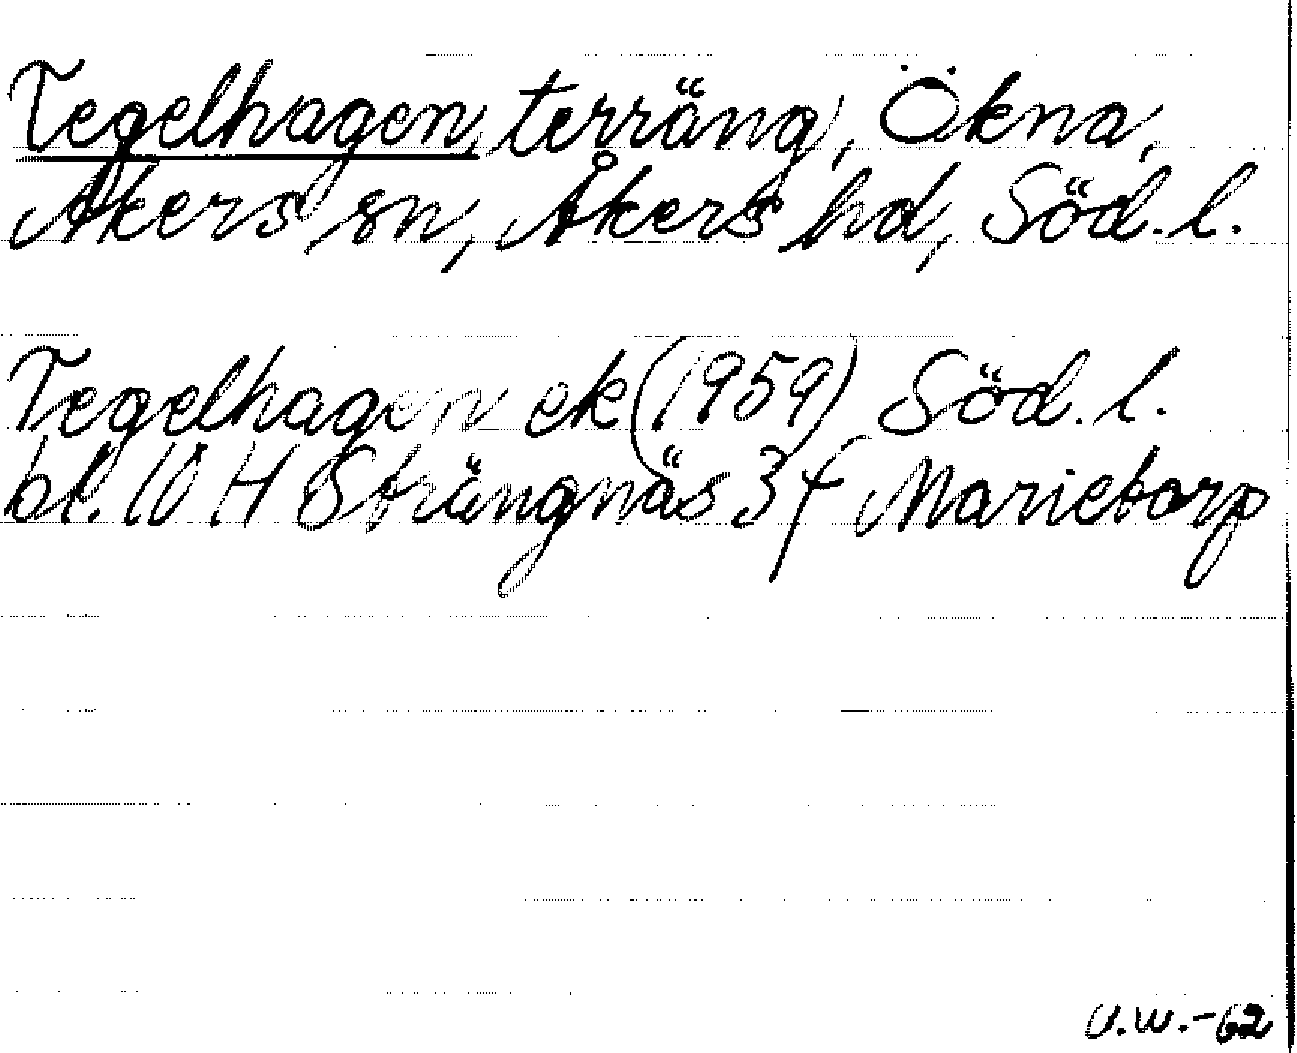 Tegelhagen, terräng, Ökna,
Åkers sn, Åkers hd, Söd. l.
Tegelhagen ek (1959) Söd. l.
bl. 10 H Strängnäs 3 f Marietorp
U.W.-62